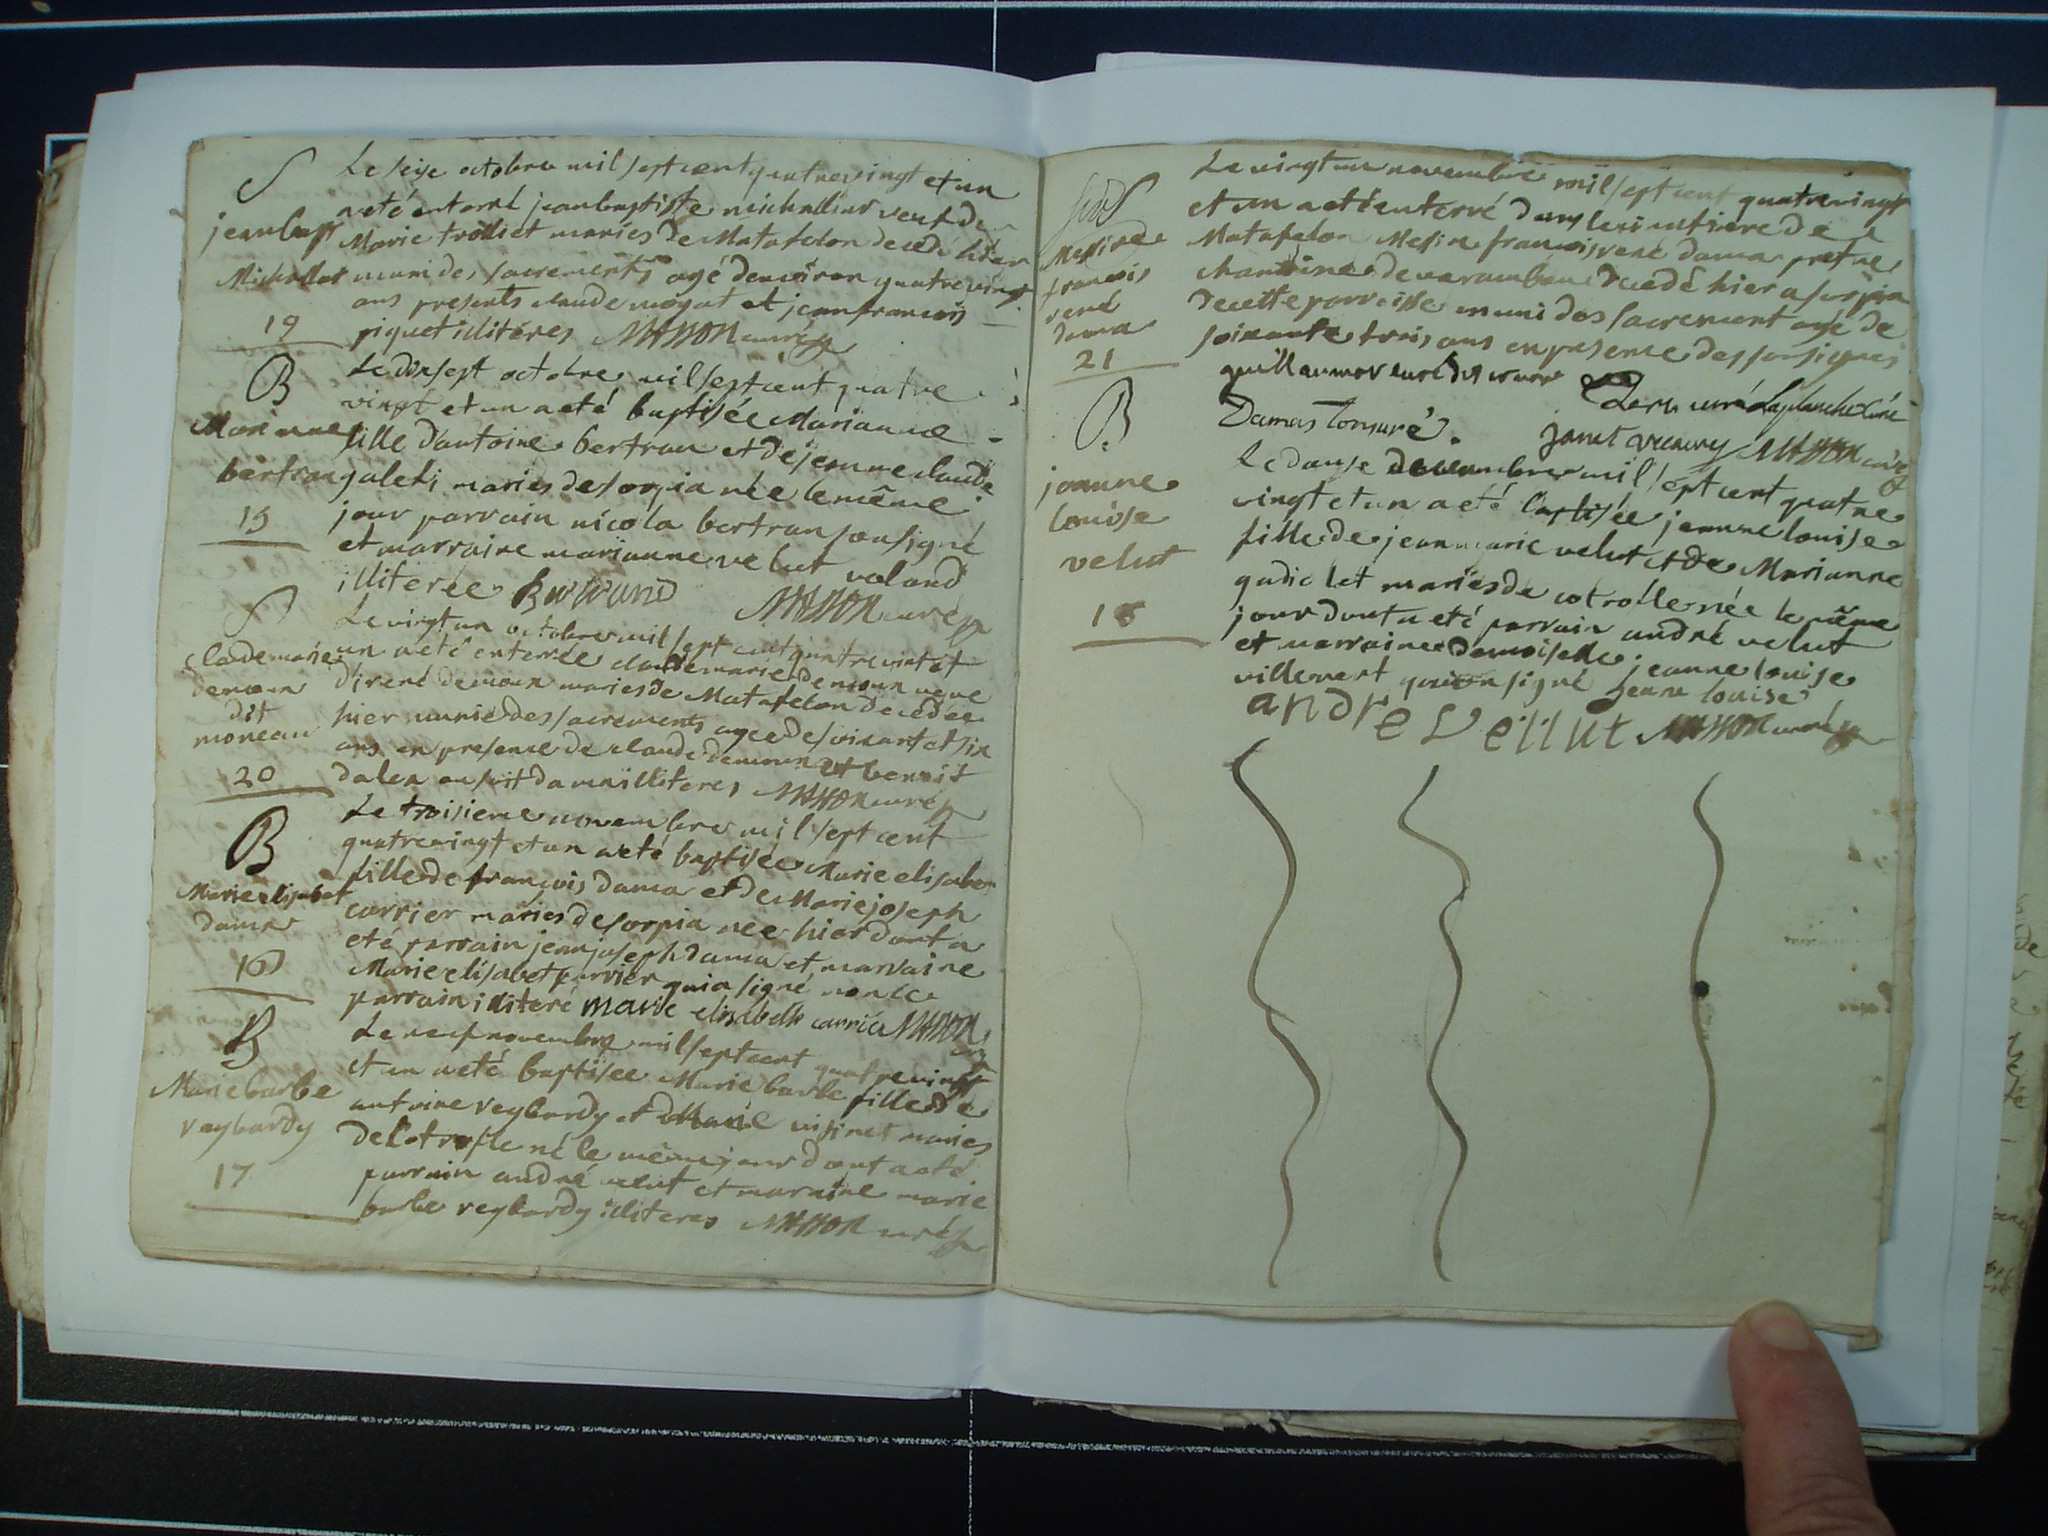 S
jean bapt
Michollet
19
Le seise octobre mil sept cent quatre vingt et un
a eté enterré jean baptiste michollet veuf de
Marie trolliet mariés de Matafelon decedé hier
muni des sacrements agé d'environ quatre vingt
ans presents claude mogat et jean francois
piquet illiteres MASSON curé
B
Marianne
bertran
15
Le dix sept octobre mil sept cent quatre
vingt et un a eté baptisée Marianne
fille d'antoine bertran et de jeanne claude
galeti mariés de sorpia née le même
jour parrain nicola bertran sousigné
et marraine marianne velut voland
illiterée Bertrand MASSON curé
S
Claudemarie
demoun
dit
moneau
20
Le vingt un octobre mil sept cent quatre vint et
un a eté enterrée claudemarie demoun veuve
di rené demoun mariés de Matafelon decedée
hier munie des sacrements agee de soixante et six
ans en presence de claude demoun et benoit
illiteres MASSON curé
B
Marie elisabet
dama
16
Le troisieme novembre mil sept cent
quatre vingt et un a eté baptisée Marie elisabet
fille de françois dama et de Marie joseph
carrier mariés de sorpia nee hier dont a
eté parrain jean joseph dama et marraine
Marie elisabet carrier qui a signé non le
parrain illiteré marie elisabeth carrier MASSON
curé
B
Marie barbe
reybardy
17
Le neuf novembre mil sept cent quatre vingt
et un a eté baptisee Marie barbe fille de
antoine reybardy et de Marie visinet mariés
de né le même jour dont a eté
parrain andré velut et maraine marie
barbe reybardy illiteres MASSON curé
S
Messire
francois
rené
dama
21
Le vingt un novembre mil sept cent quatre vingt
et un a eté enterré dans le cimetiere de
Matafelon Messire francois rené dama pretre
chanoine de varambon decedé hier a sorpia
de cette parroisse muni des sacrement agé de
soixante trois ans en presence des sousignés
curé Laplanche curé
Damas Tonsuré. MASSON curé
B
jeanne
louise
velut
18
Le douse decembre mil sept cent quatre
vingt et un a eté baptisée jeanne louise
fille de jean marie velut et de Marianne
gudic let mariés de née le même
jour dont a eté parrain andré velut
et marraine demoiselle jeanne louise
villemert qui on signé jeane louise
andre Vellut MASSON curé